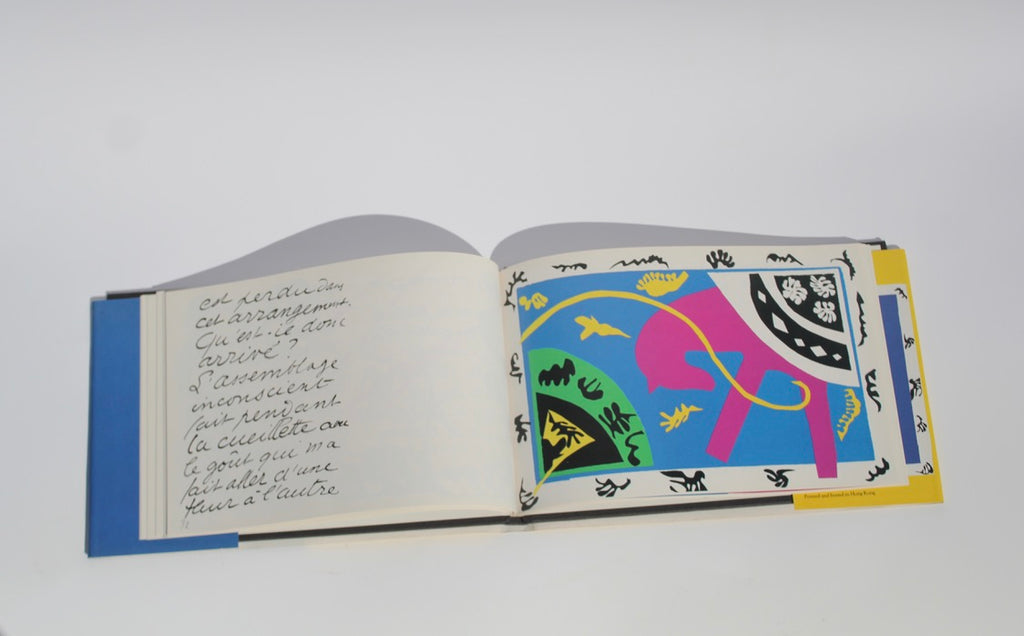 est perdu dans
cet arrangement.
Qu'est-ce donc
arrivé?
L'assemblage
inconscient
fait pendant
la cueillette avec
le goût qui m'a
fait aller d'une
fleur à l'autre
Printed and bound in Hong Kong